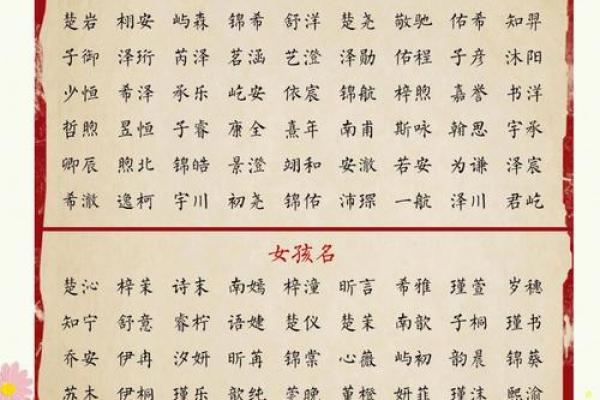 楚岩 栩安 屿森 锦希 舒洋 楚尧 敬驰 佑希 知羿
子御 泽珩 芮泽 茗涵 艺澄 泽勋 佑程 子彦 沐阳
少恒 希泽 承乐 屹安 依宸 锦航 梓煦 嘉誉 书洋
哲煦 昱恒 子睿 康全 熹年 南甫 斯咏 翰思 宇承
卿辰 煦北 锦皓 景澄 翊和 安澈 若安 为谦 泽宸
希澈 逸柯 宇川 初尧 锦佑 沛琛 一航 泽川 君屹
女孩名
楚沁 梓茉 诗末 南嫣 梓潼 昕言 希雅 瑾萱 岁穗
知宁 舒意 睿柠 语婕 楚仪 楚茉 南歆 子桐 瑾书
乔安 伊冉 汐妍 昕苒 锦棠 心薇 屿初 韵晨 锦葵
苏木 伊桐 瑾乐 歆纯 晚 堇樱 妍菲 瑾沫 熙渝